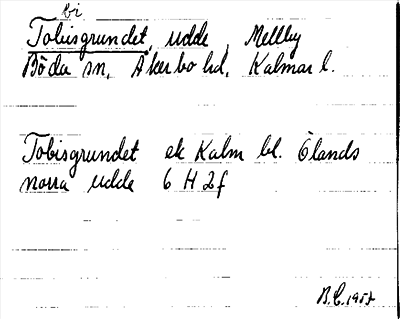 bi
Tobisgrundet, udde, Mellby
Böda sn, Åkerbo hd, Kalmar l.
Tobisgrundet ek Kalm bl. Ölands
norra udde 6 H 2f
B.C. 1957